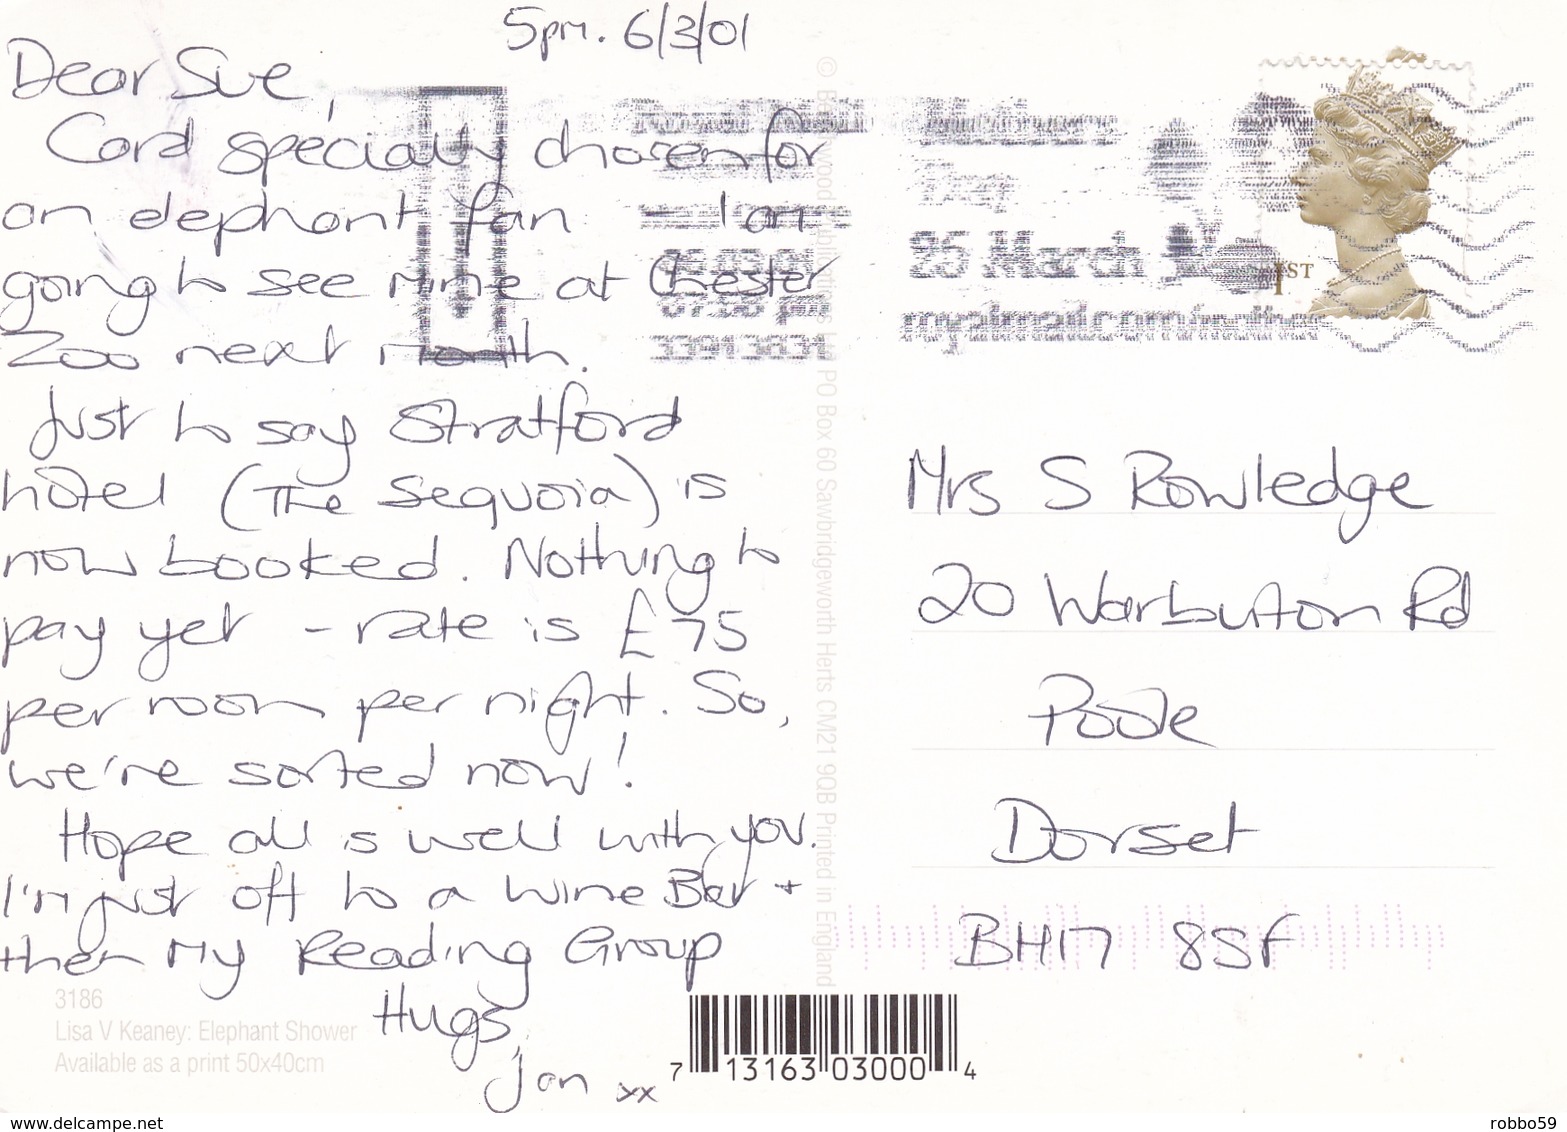 5pm. 6/3/01
Dear Sue,
Card specially chosen for
an elephant fan – I am
going to see mine at Chester
Zoo next month.
Just to say Stratford
hotel (The Sequoia) is
now booked. Nothing to
pay yet – rate is £75
per room per night. So,
we're sorted now!
Hope all is well with you.
I'm just off to a Wine Bar +
then my Reading Group
Hugs,
Jan xx
3186
Lisa V Keaney: Elephant Shower
Available as a print 50x40cm
PO Box 60 Sawbridgeworth Herts CM21 9QB Printed in England
Royal Mail
07.30 pm
Mothers
Day
25 March
royalmail.com/mother
1ST
Mrs S Rowledge
20 Warbuton Rd
Poole
Dorset
BH17 8SF
7 13163 03000 4
www.delcampe.net
robbo59